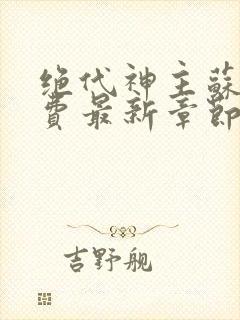 绝代神主蘇
費最新章節
吉野舰